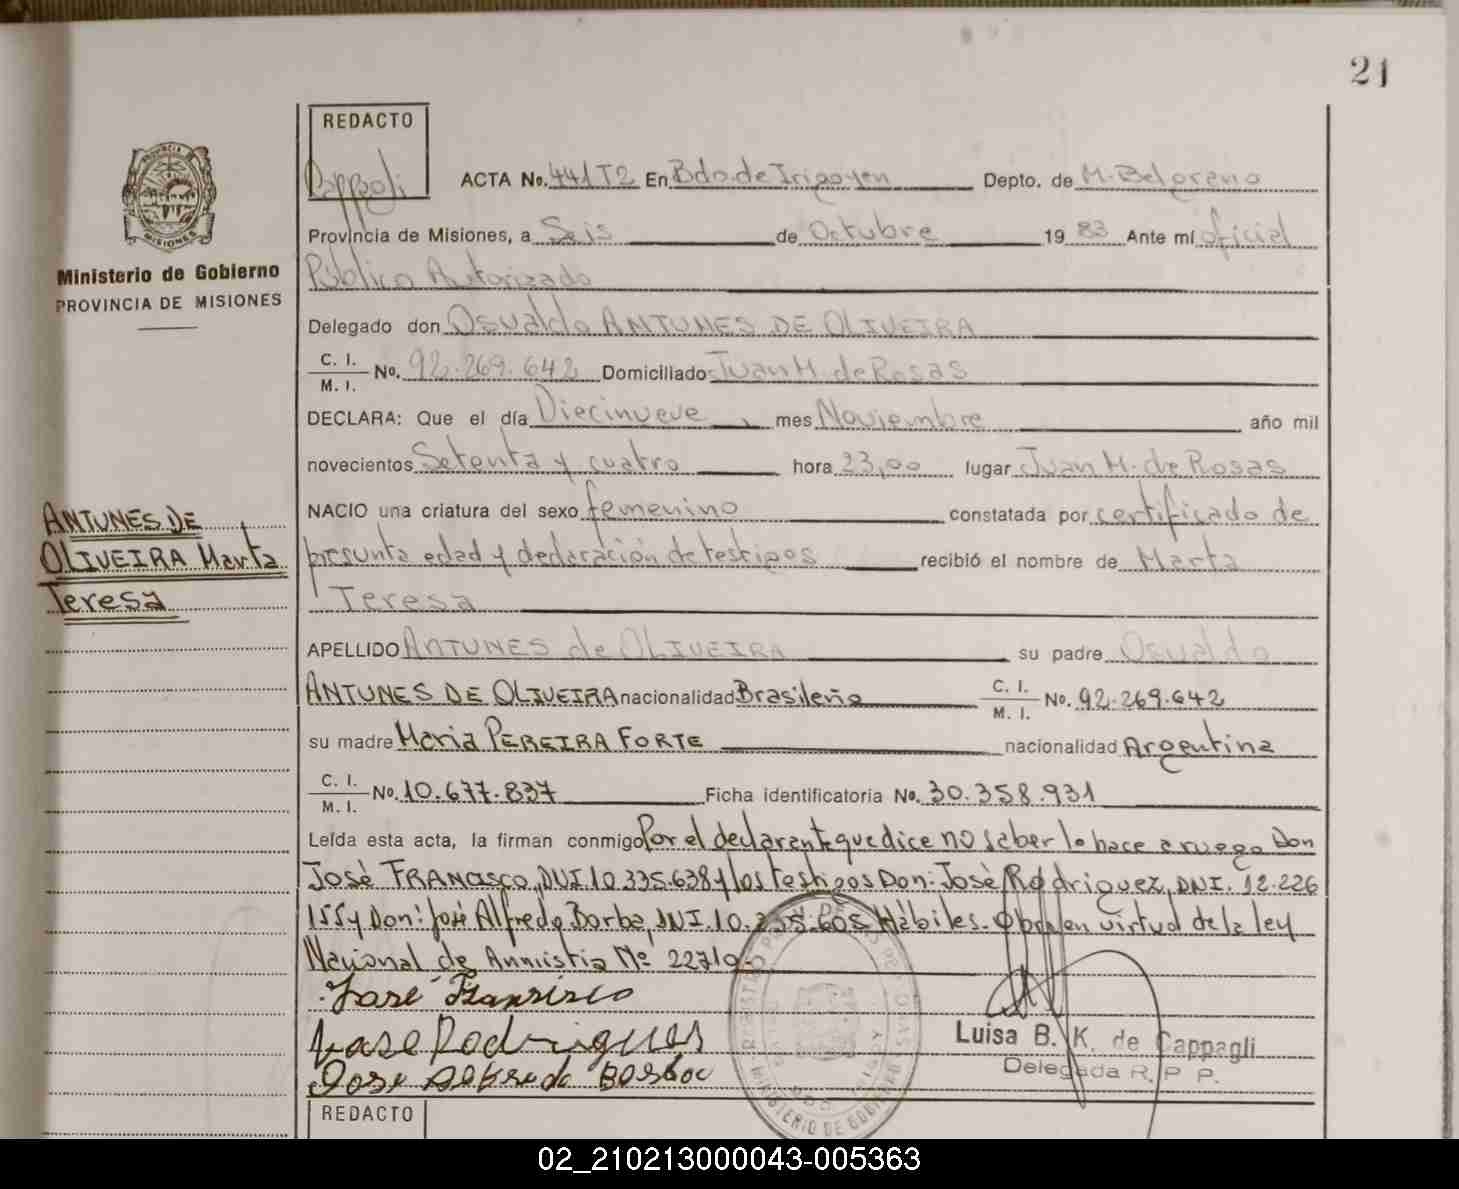 21
REDACTO
ACTA No. 441 T2 En Bdo. de Irigoyen Depto. de M. Belgrano
Provincia de Misiones, a Seis de Octubre 19 83 Ante mí oficial
Público Autorizado
Ministerio de Gobierno
PROVINCIA DE MISIONES
Delegado don Osvaldo ANTUNES DE OLIVEIRA
C. I.
M. I. No. 92.269.642 Domiciliado Juan M. de Rosas
DECLARA: Que el día Diecinueve mes Noviembre año mil
novecientos Setenta y cuatro hora 23,00 lugar Juan M. de Rosas
ANTUNES DE
OLIVEIRA Marta
Teresa
NACIO una criatura del sexo femenino constatada por certificado de
presunta edad y declaración de testigos recibió el nombre de Marta
Teresa
APELLIDO ANTUNES de OLIVEIRA su padre Osvaldo
ANTUNES DE OLIVEIRA nacionalidad Brasileña C. I.
M. I. No. 92.269.642
su madre Maria PEREIRA FORTE nacionalidad Argentina
C. I.
M. I. No. 10.677.837 Ficha identificatoria No. 30.358.931
Leída esta acta, la firman conmigo Por el declarante que dice no saber lo hace a ruego Don
José FRANCISCO, DNI 10.335.638 y los testigos Don: José Rodriguez, DNI. 12.226
155 y Don: José Alfredo Borba, DNI. 10.335.605 Hábiles. en virtud de la ley
Nacional de Amnistia Nº
José Fransisco
Jose Rodrigues
Jose Alfredo Borba
Luisa B. K. de Cappagli
Delegada R. P. P.
REDACTO
02_210213000043-005363